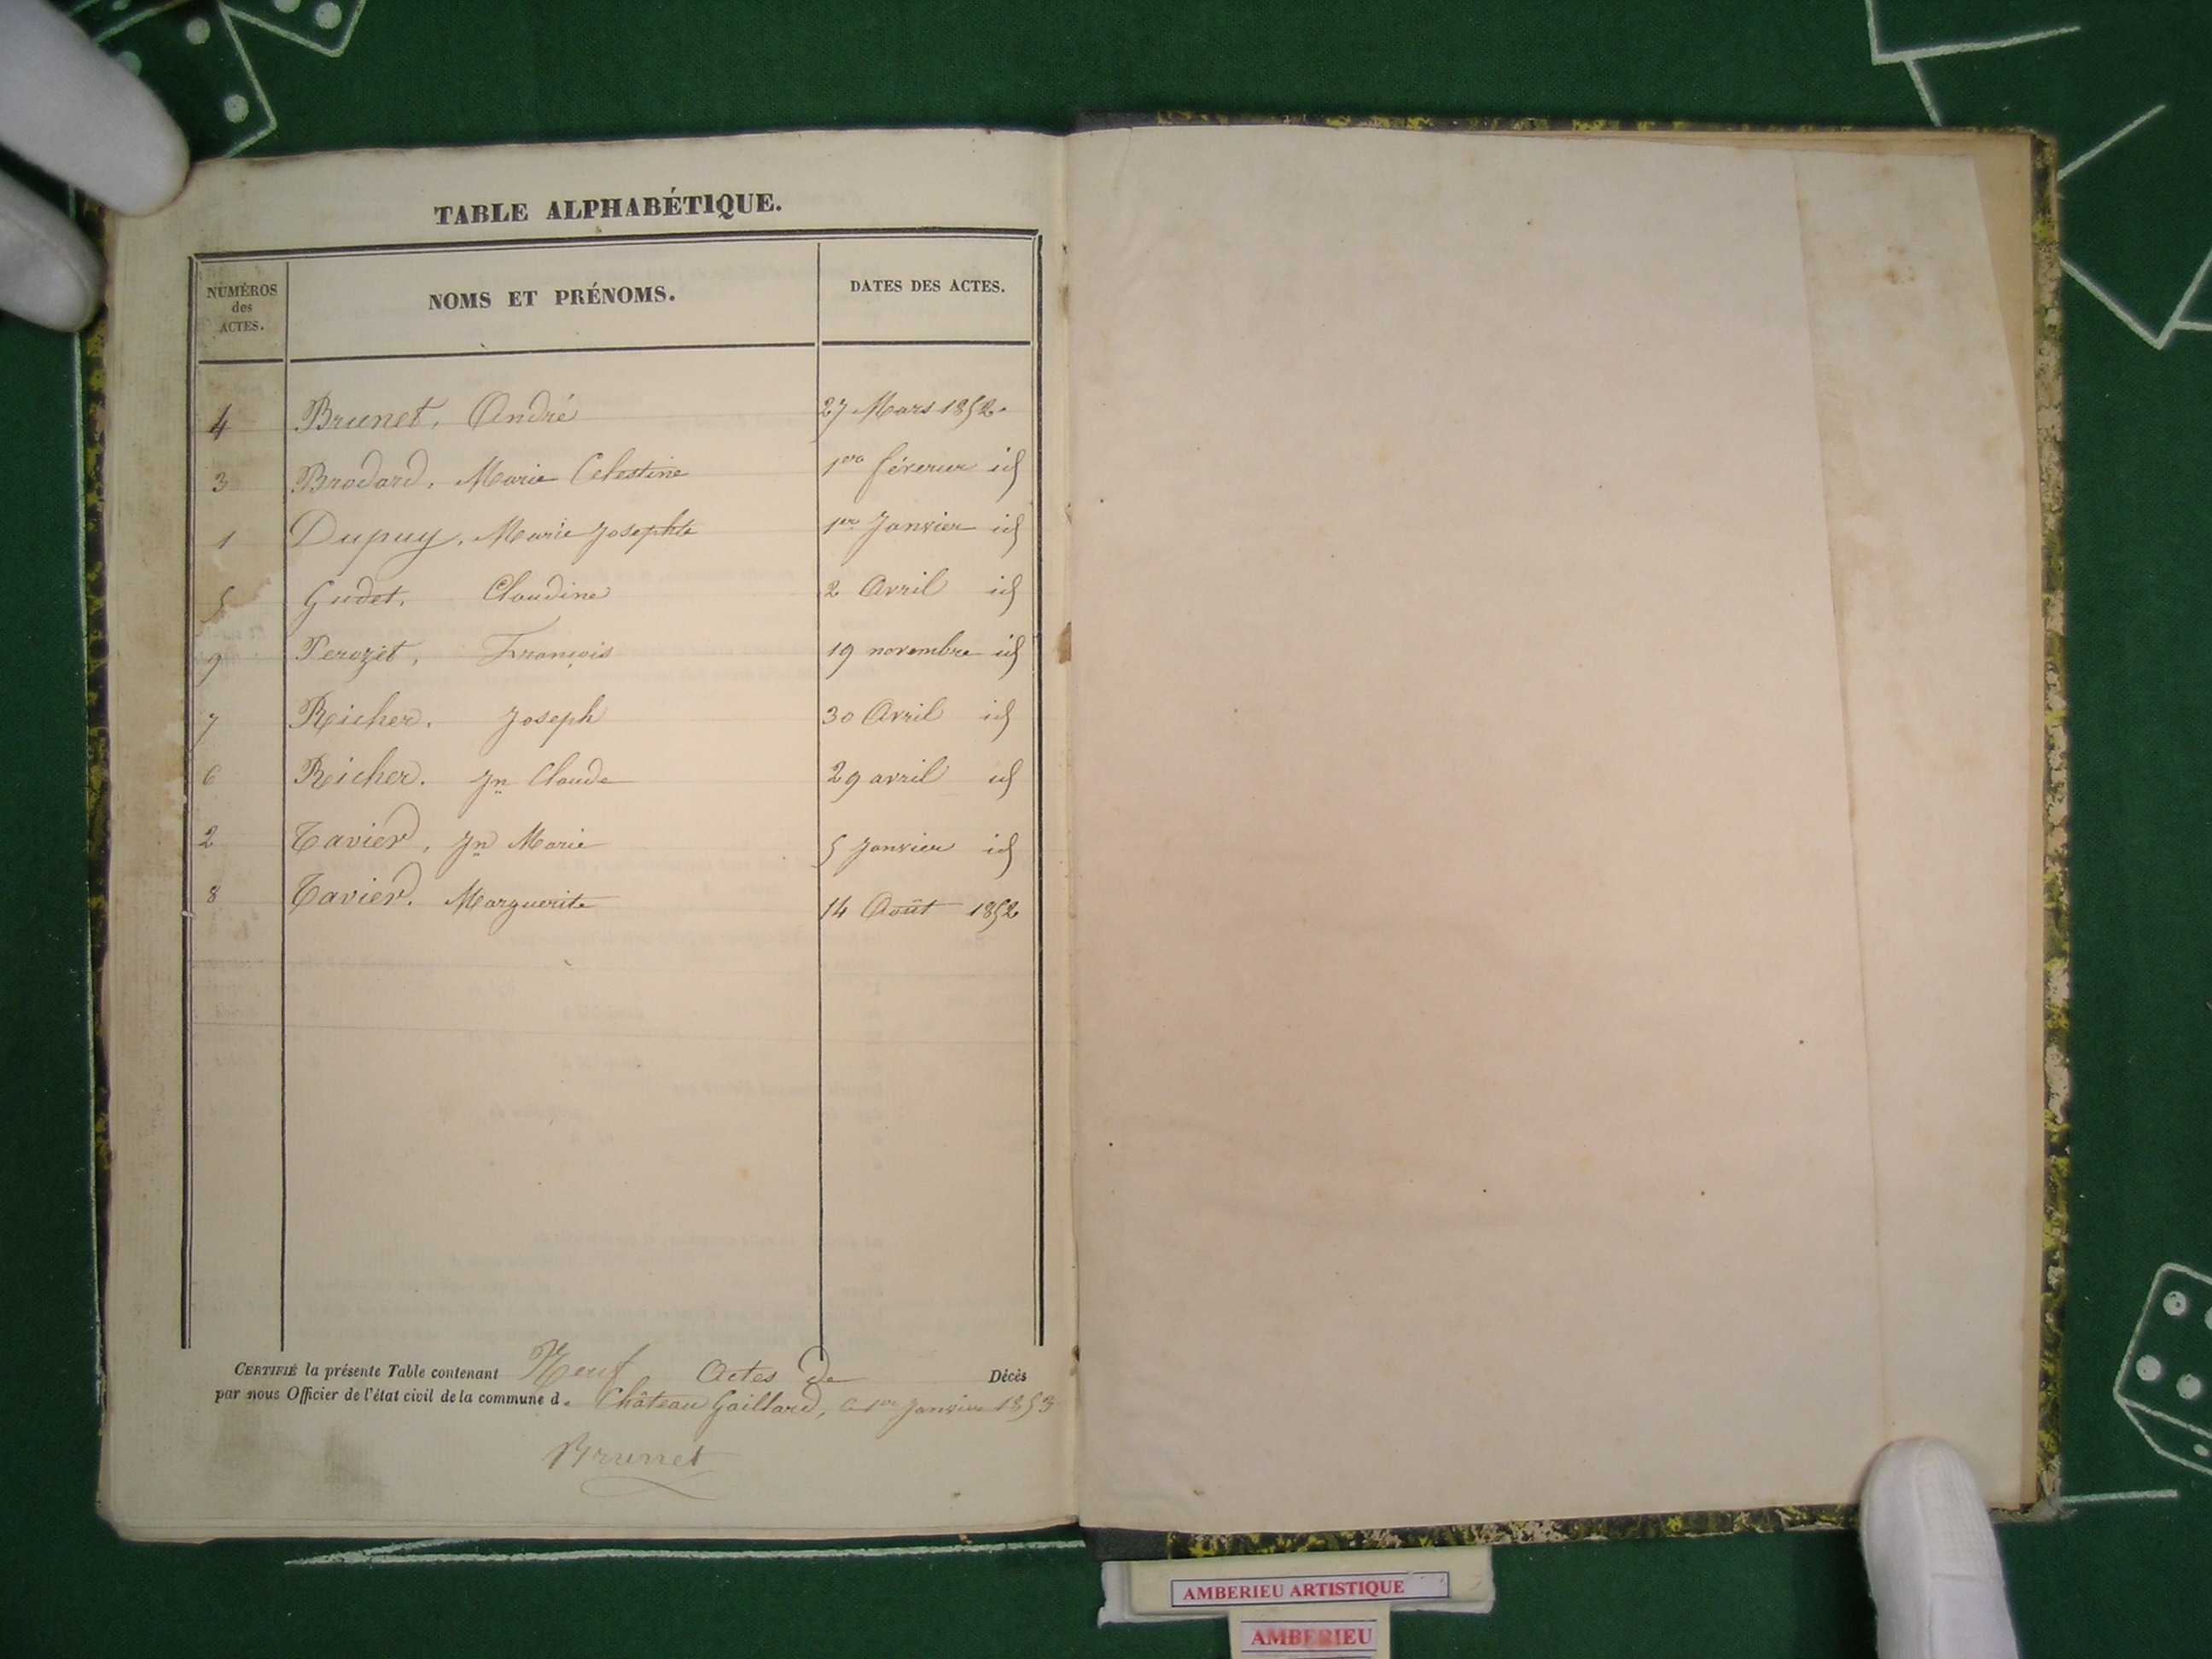 TABLE ALPHABÉTIQUE.
NUMÉROS des ACTES. NOMS ET PRÉNOMS. DATES DES ACTES.
4 Brunet, André 27 Mars 1852.
3 Brodard, Marie Celestine 1er féverier id
1 Dupuy, Marie Josephte 1er Janvier id
5 Gudet, Claudine 2 Avril id
9 Perozet, François 19 novembre id
7 Reicher, Joseph 30 Avril id
6 Reicher. Jn Claude 29 avril id
2 Tavier, Jn Marie 5 Janvier id
8 Tavier. Marguerite 14 Août 1852
CERTIFIÉ la présente Table contenant Neuf Actes de Décès
par nous Officier de l'état civil de la commune de Château Gaillard, le 1er Janvier 1853
Brunet
AMBERIEU ARTISTIQUE
AMBERIEU